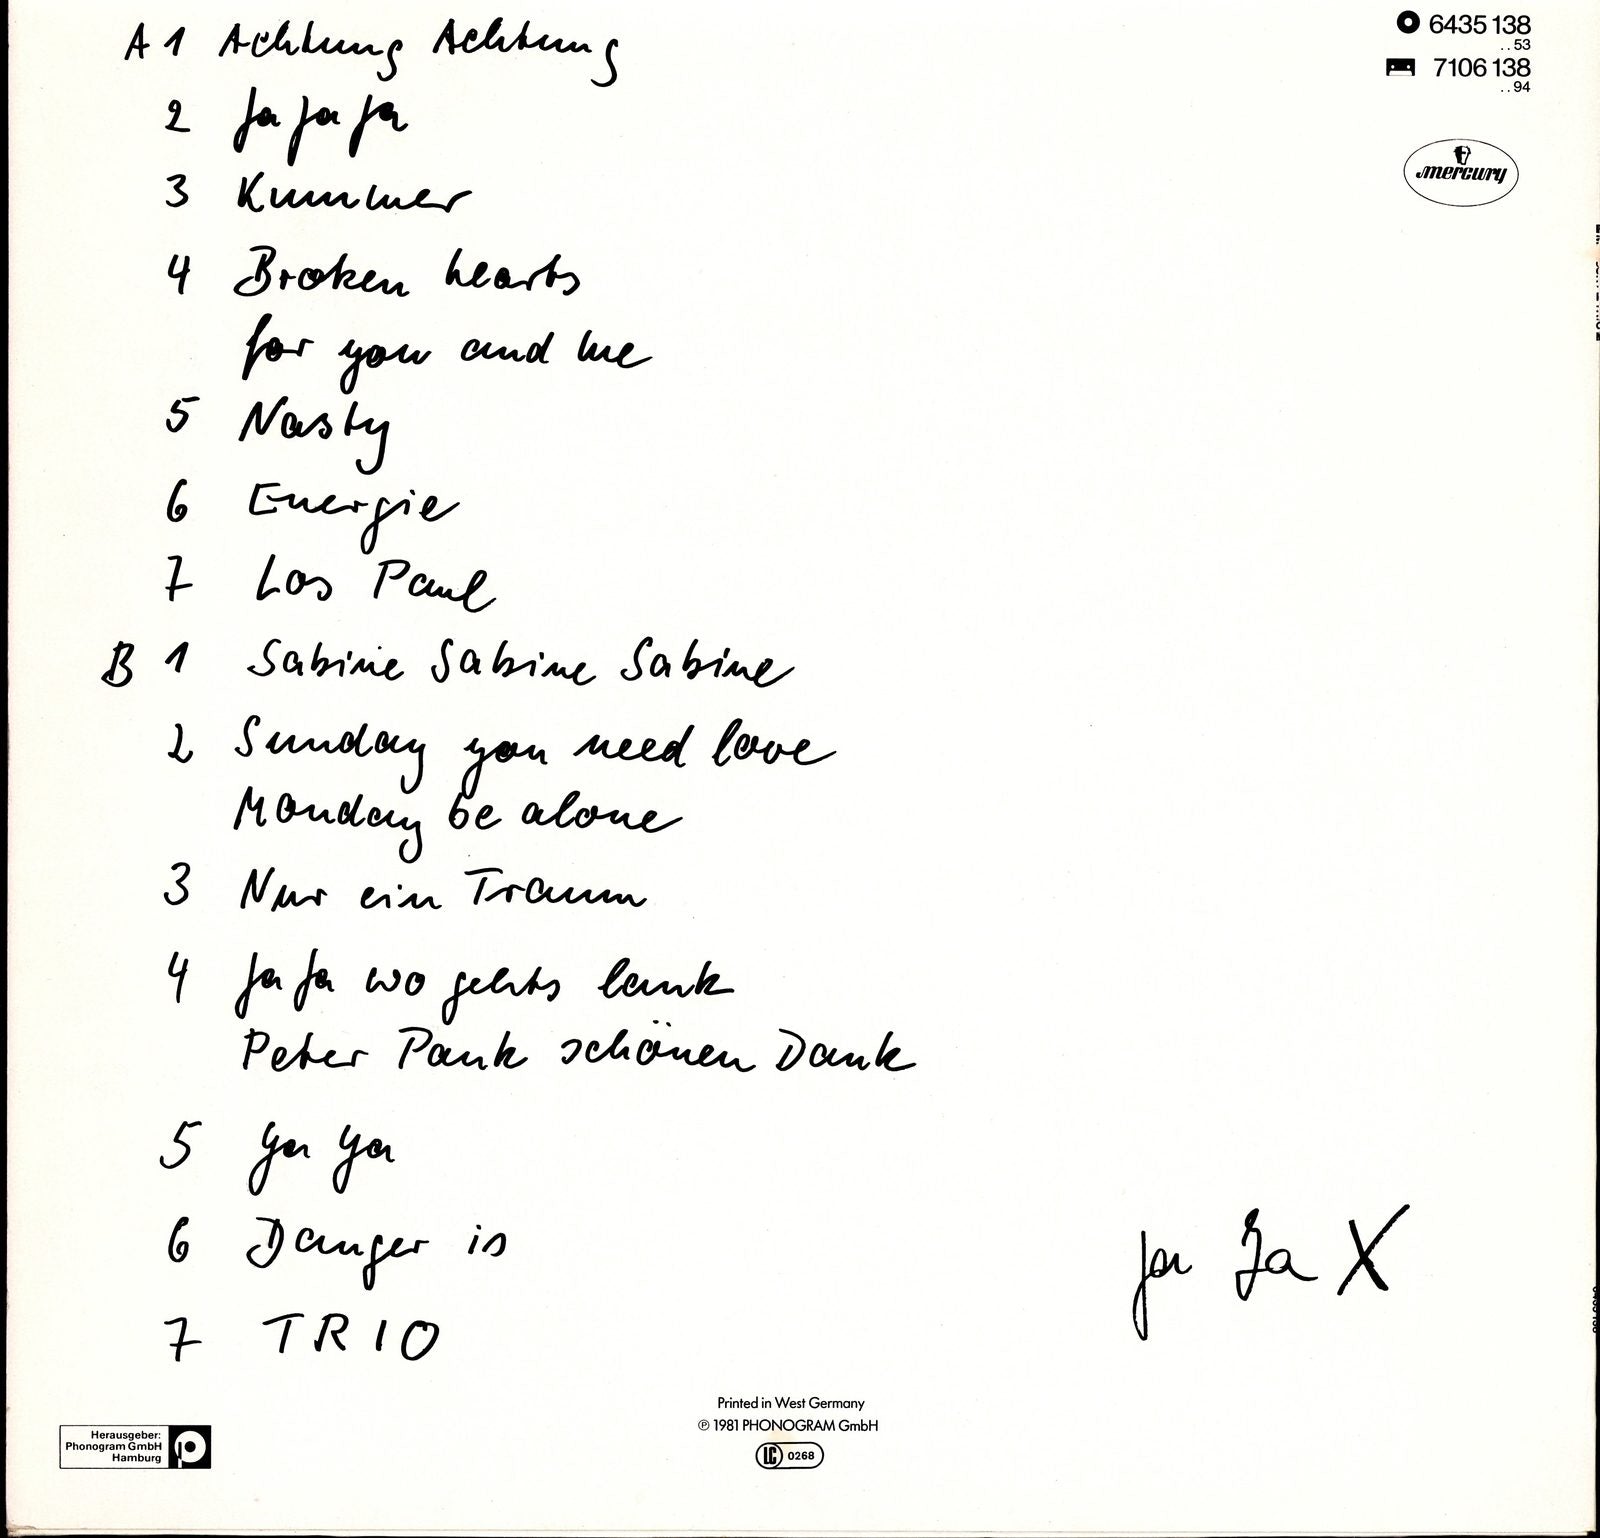 A 1 Achtung Achtung
2 Ja Ja Ja
3 Kummer
4 Broken hearts
for you and me
5 Nasty
6 Energie
7 Los Paul
B 1 Sabine Sabine Sabine
2 Sunday you need love
Monday be alone
3 Nur ein Traum
4 Ja Ja wo gehts lank
Peter Pank schönen Dank
5 Ya Ya
6 Danger is
7 TRIO
ja Ja X
6435 138
..53
7106 138
..94
mercury
Herausgeber:
Phonogram GmbH
Hamburg
Printed in West Germany
℗ 1981 PHONOGRAM GmbH
LC 0268